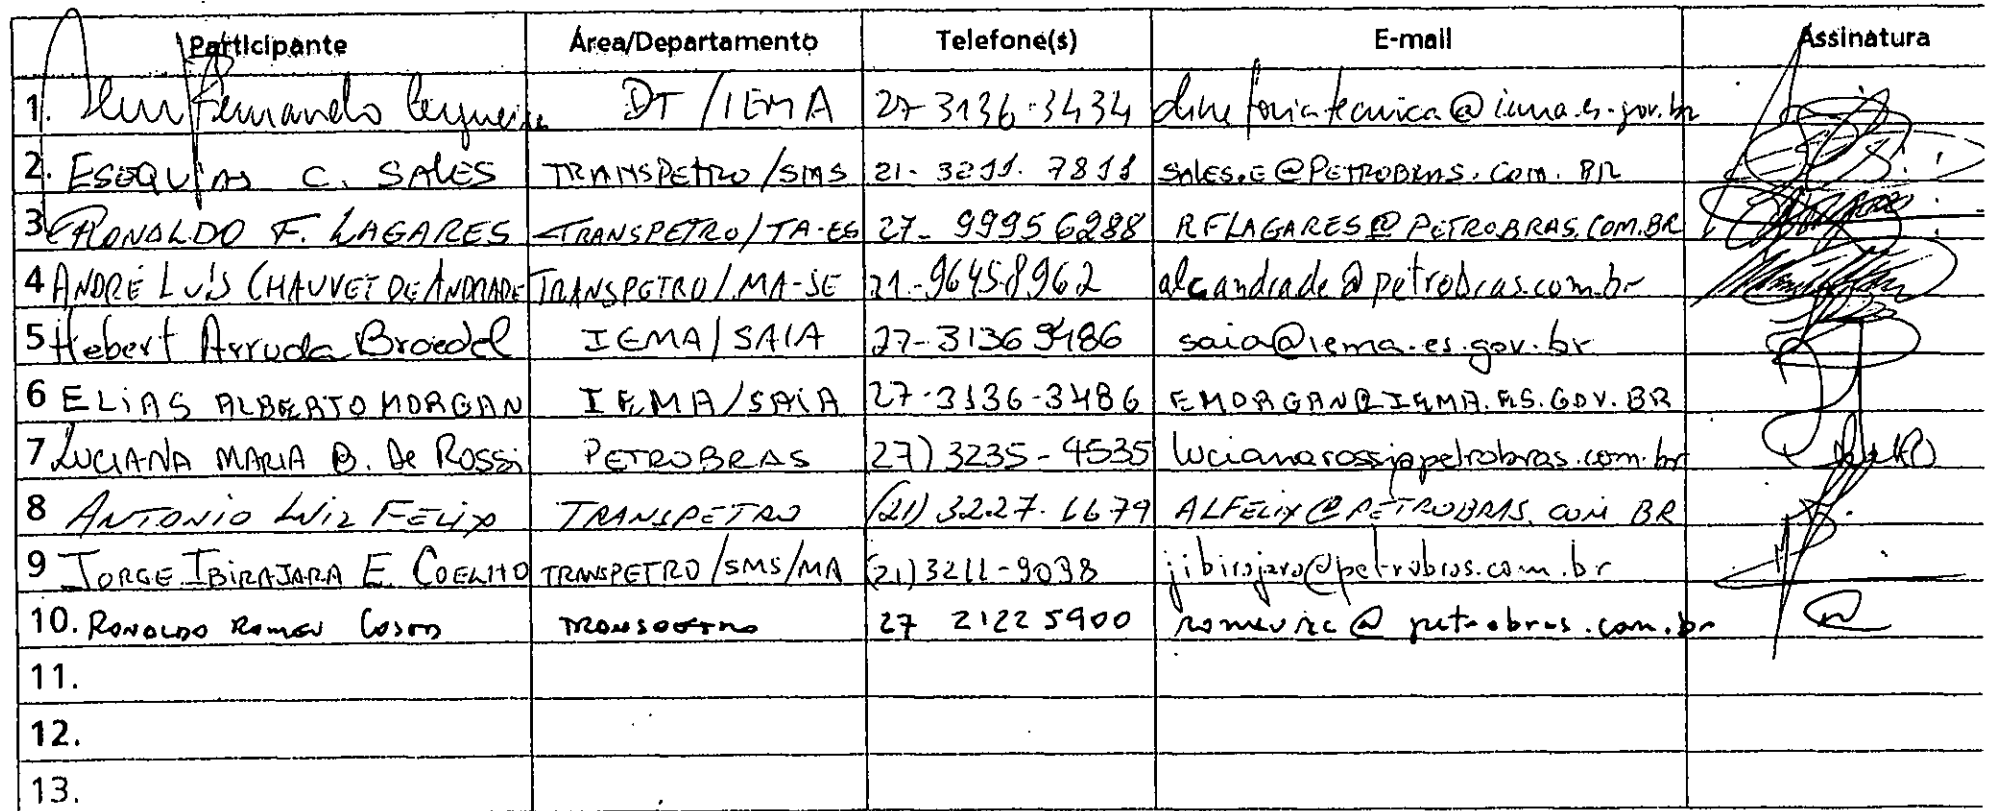 Participante Área/Departamento Telefone(s) E-mail Assinatura
1. Fernando DT/IEMA 27-3136-3434 @iema.es.gov.br
2. ESEQUIAS C. SALES TRANSPETRO/SMS 21-3211.7811 SALES.E@PETROBRAS.COM.BR
3 RONALDO F. LAGARES TRANSPETRO/TA-ES 27-99956288 RFLAGARES@PETROBRAS.COM.BR
4 ANDRÉ LUÍS CHAUVET DE ANDRADE TRANSPETRO/MA-SE 21-96458962 alcandrade@petrobras.com.br
5 Hebert Arruda Broedel IEMA/SAIA saia@iema.es.gov.br
6 ELIAS ALBERTO MORGAN IEMA/SAIA 27-3136-3486 EMORGAN@IEMA.ES.GOV.BR
7 LUCIANA MARIA B. De ROSSI PETROBRAS 27) 3235-4535 lucianarossi@petrobras.com.br
8 ANTONIO LUIZ FELIX TRANSPETRO (21) 3227.6679 ALFELIX@PETROBRAS.COM BR
9 JORGE IBIRAJARA E. COELHO TRANSPETRO/SMS/MA (21) 3211-9038 jibirajara@petrobras.com.br
10. RONALDO ROMEU COSTA TRANSPETRO 27 21225900 @petrobras.com.br
11.
12.
13.